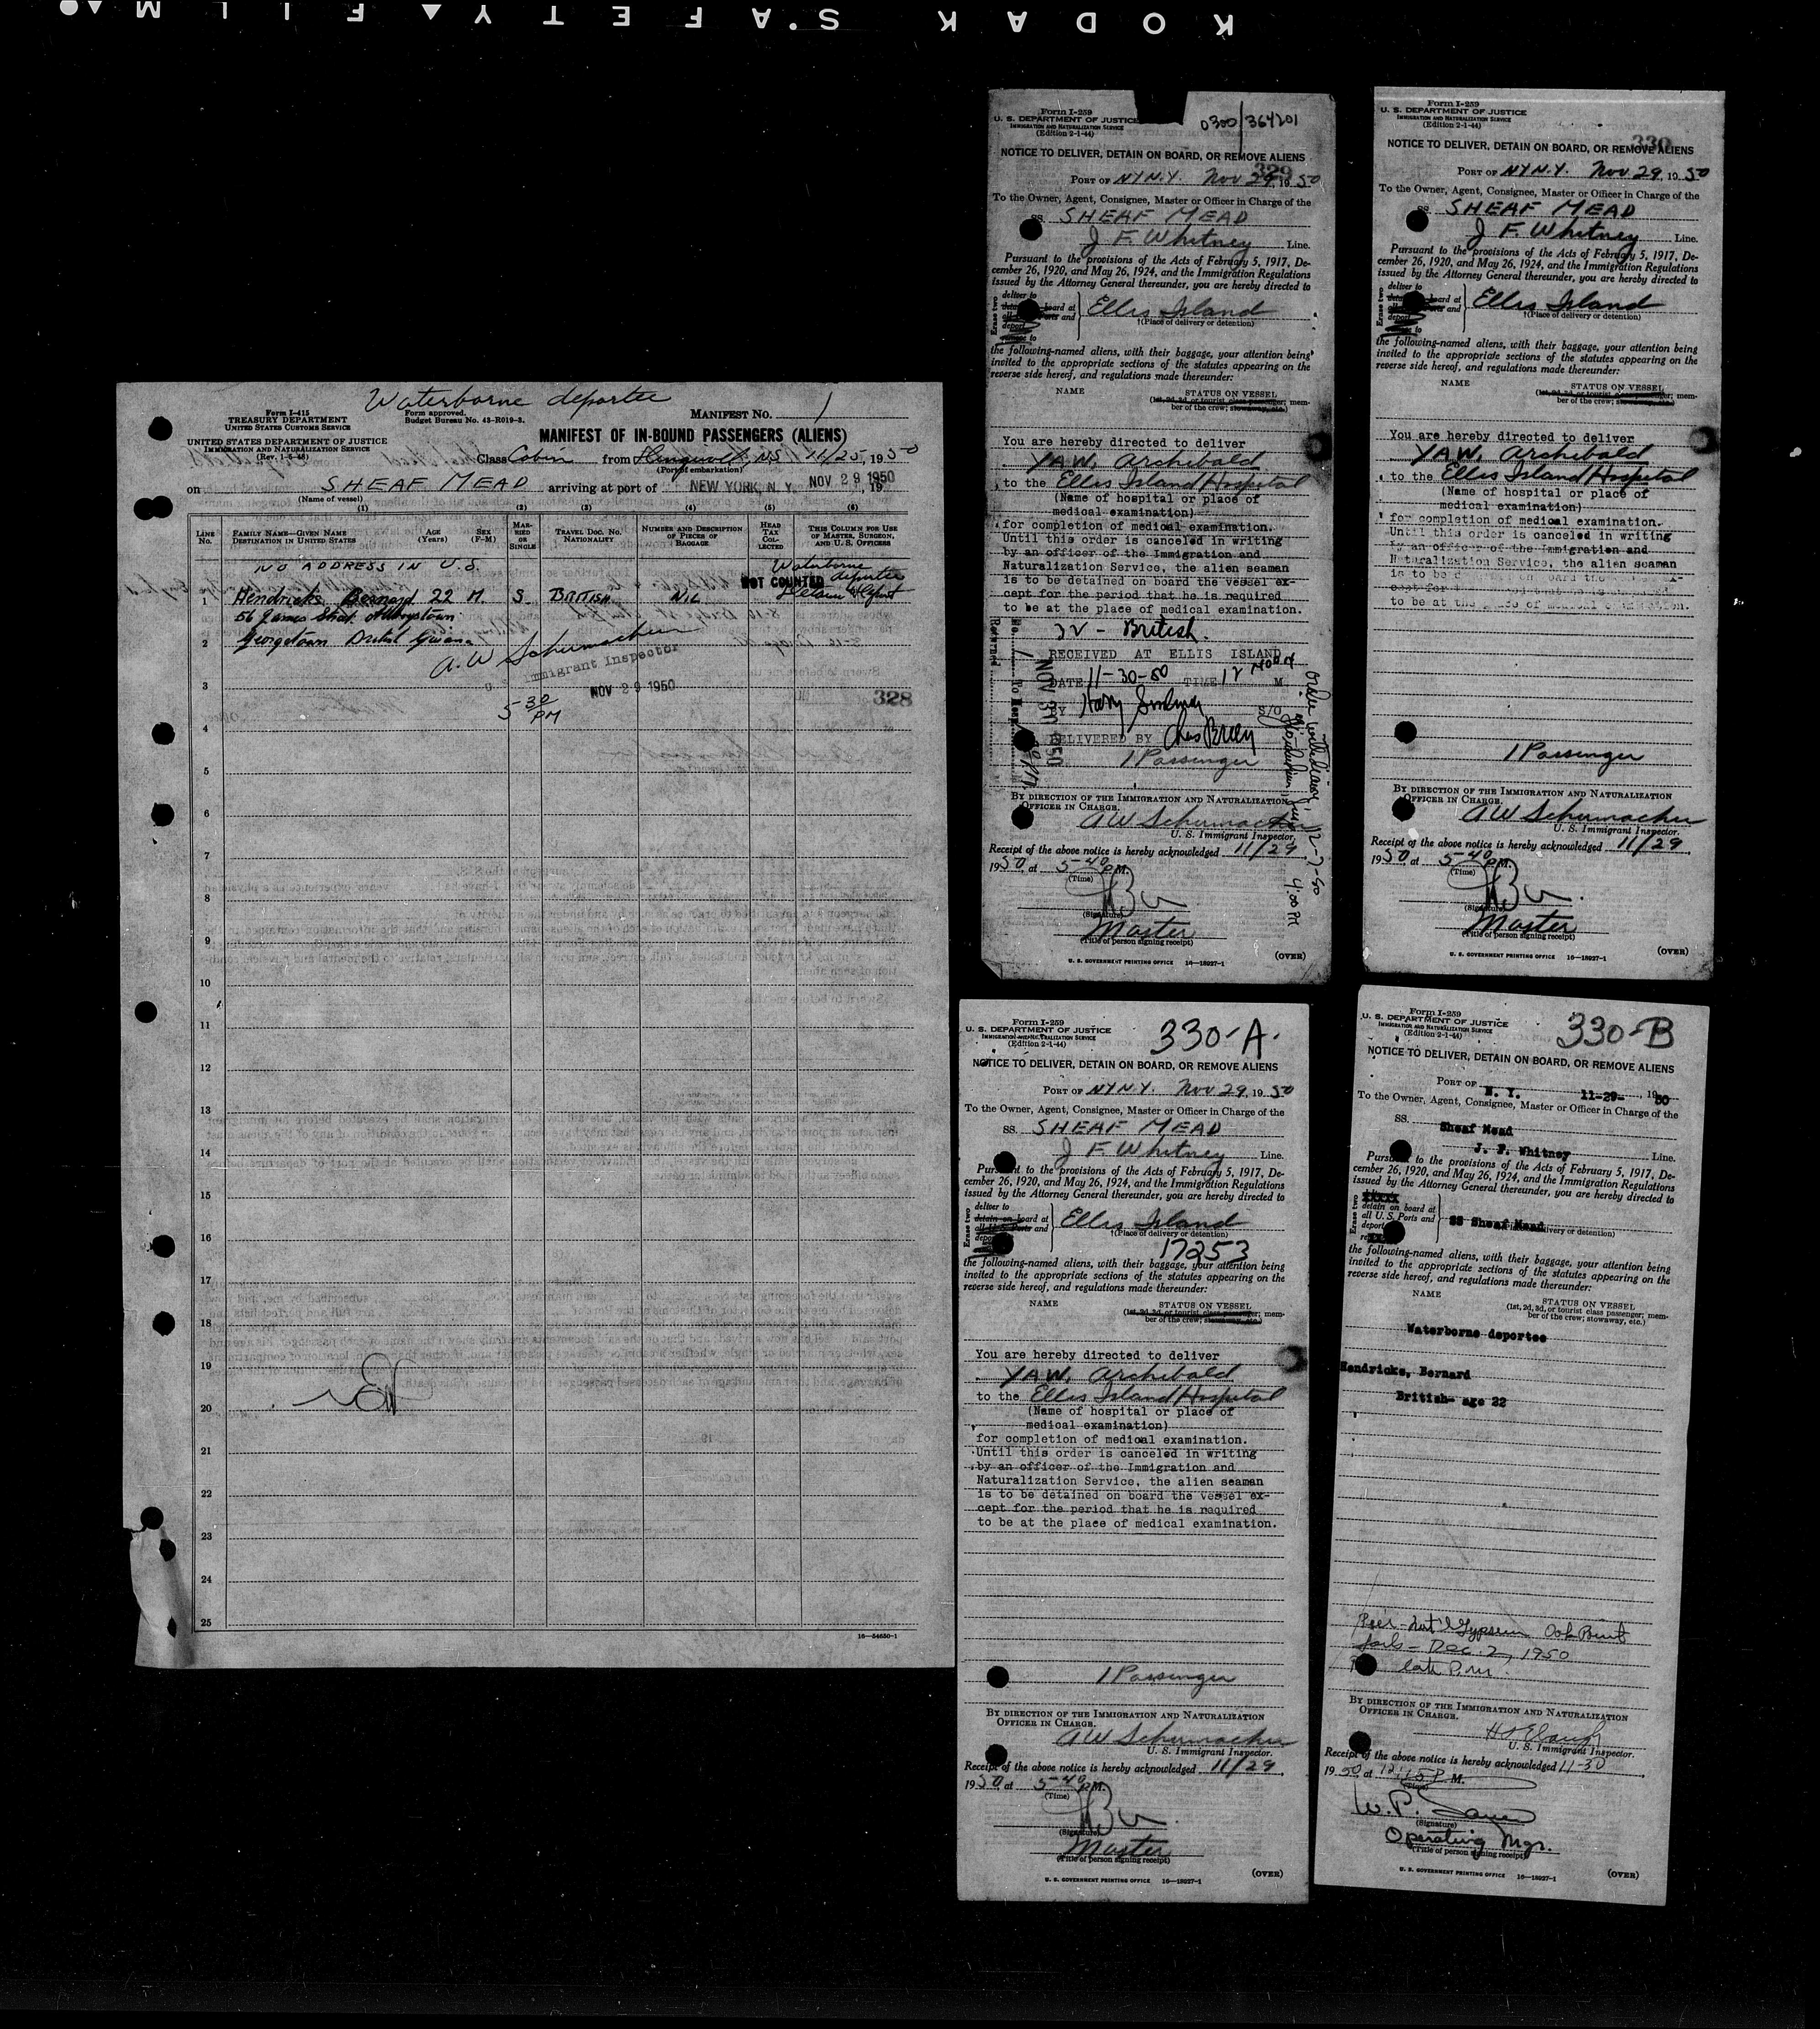 KODAK S·AFETY▲FILM
Waterborne deportee
Form I-415
TREASURY DEPARTMENT
UNITED STATES CUSTOMS SERVICE
Form approved.
Budget Bureau No. 43-R019-3.
MANIFEST No. 1
UNITED STATES DEPARTMENT OF JUSTICE
IMMIGRATION AND NATURALIZATION SERVICE
(Rev. 1-5-48)
MANIFEST OF IN-BOUND PASSENGERS (ALIENS)
Class Cabin from N.S. 11/25, 1950
(Port of embarkation)
on SHEAF MEAD arriving at port of NEW YORK, N. Y. NOV 29 1950, 19
(Name of vessel)
(1) (2) (3) (4) (5) (6)
LINE No.
FAMILY NAME—GIVEN NAME
DESTINATION IN UNITED STATES
AGE (Years)
SEX (F-M)
MARRIED OR SINGLE
TRAVEL DOC. NO.
NATIONALITY
NUMBER AND DESCRIPTION OF PIECES OF BAGGAGE
HEAD TAX COLLECTED
THIS COLUMN FOR USE OF MASTER, SURGEON, AND U. S. OFFICERS
NO ADDRESS IN U.S.
Waterborne
NOT COUNTED deportee
1 Hendricks Bernard 22 M. S BRITISH NIL
56 James Street Albouystown
2 Georgetown British Guiana
A. W Schumacher
U. S. Immigrant Inspector
3 NOV 29 1950
328
5 30 PM
4
5
6
7
8
9
10
11
12
13
14
15
16
17
18
19
20
21
22
23
24
25
16—54650-1
Form I-259
U. S. DEPARTMENT OF JUSTICE
IMMIGRATION AND NATURALIZATION SERVICE
(Edition 2-1-44)
0300/364201
NOTICE TO DELIVER, DETAIN ON BOARD, OR REMOVE ALIENS
329
PORT OF NY N.Y. Nov 29, 1950
To the Owner, Agent, Consignee, Master or Officer in Charge of the
SS. SHEAF MEAD
J F. Whitney Line.
Pursuant to the provisions of the Acts of February 5, 1917, De-
cember 26, 1920, and May 26, 1924, and the Immigration Regulations
issued by the Attorney General thereunder, you are hereby directed to
Erase two
deliver to
board at
Ports and
deport
Ellis Island
†(Place of delivery or detention)
the following-named aliens, with their baggage, your attention being
invited to the appropriate sections of the statutes appearing on the
reverse side hereof, and regulations made thereunder:
NAME STATUS ON VESSEL
(1st, 2d, 3d, or tourist class passenger; mem-
ber of the crew; stowaway, etc.)
You are hereby directed to deliver
YAW, Archibald
to the Ellis Island Hospital
(Name of hospital or place of
medical examination)
for completion of medical examination.
Until this order is canceled in writing
by an officer of the Immigration and
Naturalization Service, the alien seaman
is to be detained on board the vessel ex-
cept for the period that he is required
to be at the place of medical examination.
32 - British.
RECEIVED AT ELLIS ISLAND
DATE 11-30-50 TIME 12 Noon M
BY S/O
DELIVERED BY Chas
1 Passenger
NOV 30 1950
Returned
12-7-50 4:00 PM
BY DIRECTION OF THE IMMIGRATION AND NATURALIZATION
OFFICER IN CHARGE.
AW Schumacher
U. S. Immigrant Inspector.
Receipt of the above notice is hereby acknowledged 11/29,
1950, at 5-40 P.M.
(Time)
(Signature)
Master
(Title of person signing receipt)
(OVER)
U. S. GOVERNMENT PRINTING OFFICE 16—18927-1
Form I-259
U. S. DEPARTMENT OF JUSTICE
IMMIGRATION AND NATURALIZATION SERVICE
(Edition 2-1-44)
330
NOTICE TO DELIVER, DETAIN ON BOARD, OR REMOVE ALIENS
PORT OF NY N.Y. Nov. 29, 1950
To the Owner, Agent, Consignee, Master or Officer in Charge of the
SS. SHEAF MEAD
J F. Whitney Line.
Pursuant to the provisions of the Acts of February 5, 1917, De-
cember 26, 1920, and May 26, 1924, and the Immigration Regulations
issued by the Attorney General thereunder, you are hereby directed to
Erase two
deliver to
board at
Ports and
Ellis Island
†(Place of delivery or detention)
the following-named aliens, with their baggage, your attention being
invited to the appropriate sections of the statutes appearing on the
reverse side hereof, and regulations made thereunder:
NAME STATUS ON VESSEL
(1st, 2d, 3d, or tourist class passenger; mem-
ber of the crew; stowaway, etc.)
You are hereby directed to deliver
YAW, Archibald
to the Ellis Island Hospital
(Name of hospital or place of
medical examination)
for completion of medical examination.
Until this order is canceled in writing
by an officer of the Immigration and
Naturalization Service, the alien seaman
is to be
to be at the place of medical examination.
1 Passenger
BY DIRECTION OF THE IMMIGRATION AND NATURALIZATION
OFFICER IN CHARGE.
AW Schumacher
U. S. Immigrant Inspector.
Receipt of the above notice is hereby acknowledged 11/29,
1950, at 5-40 P.M.
(Time)
(Signature)
Master
(Title of person signing receipt)
(OVER)
U. S. GOVERNMENT PRINTING OFFICE 16—18927-1
Form I-259
U. S. DEPARTMENT OF JUSTICE
IMMIGRATION AND NATURALIZATION SERVICE
(Edition 2-1-44)
330-A.
NOTICE TO DELIVER, DETAIN ON BOARD, OR REMOVE ALIENS
PORT OF NY N.Y. Nov 29, 1950
To the Owner, Agent, Consignee, Master or Officer in Charge of the
SS. SHEAF MEAD
J F. Whitney Line.
Pursuant to the provisions of the Acts of February 5, 1917, De-
cember 26, 1920, and May 26, 1924, and the Immigration Regulations
issued by the Attorney General thereunder, you are hereby directed to
Erase two
deliver to
detain on board at
all U.S. Ports and
Ellis Island
†(Place of delivery or detention)
17253
the following-named aliens, with their baggage, your attention being
invited to the appropriate sections of the statutes appearing on the
reverse side hereof, and regulations made thereunder:
NAME STATUS ON VESSEL
(1st, 2d, 3d, or tourist class passenger; mem-
ber of the crew; stowaway, etc.)
You are hereby directed to deliver
YAW, Archibald
to the Ellis Island Hospital
(Name of hospital or place of
medical examination)
for completion of medical examination.
Until this order is canceled in writing
by an officer of the Immigration and
Naturalization Service, the alien seaman
is to be detained on board the vessel ex-
cept for the period that he is required
to be at the place of medical examination.
1 Passenger
BY DIRECTION OF THE IMMIGRATION AND NATURALIZATION
OFFICER IN CHARGE.
AW Schumacher
U. S. Immigrant Inspector.
Receipt of the above notice is hereby acknowledged 11/29,
1950, at 5-40 P.M.
(Time)
(Signature)
Master
(Title of person signing receipt)
(OVER)
U. S. GOVERNMENT PRINTING OFFICE 16—18927-1
Form I-259
U. S. DEPARTMENT OF JUSTICE
IMMIGRATION AND NATURALIZATION SERVICE
(Edition 2-1-44)
330-B
NOTICE TO DELIVER, DETAIN ON BOARD, OR REMOVE ALIENS
PORT OF N. Y. 11-29-, 1950
To the Owner, Agent, Consignee, Master or Officer in Charge of the
SS. Sheaf Mead
J. F. Whitney Line.
Pursuant to the provisions of the Acts of February 5, 1917, De-
cember 26, 1920, and May 26, 1924, and the Immigration Regulations
issued by the Attorney General thereunder, you are hereby directed to
Erase two
xxxxx
detain on board at
all U.S. Ports and
deport
SS Sheaf Mead
the following-named aliens, with their baggage, your attention being
invited to the appropriate sections of the statutes appearing on the
reverse side hereof, and regulations made thereunder:
NAME STATUS ON VESSEL
(1st, 2d, 3d, or tourist class passenger; mem-
ber of the crew; stowaway, etc.)
Waterborne deportee
Hendricks, Bernard
British- age 22
Pier - Nat'l Gypsum
Sails - Dec. 2, 1950
late P.M.
BY DIRECTION OF THE IMMIGRATION AND NATURALIZATION
OFFICER IN CHARGE.
U. S. Immigrant Inspector.
Receipt of the above notice is hereby acknowledged 11-30,
1950, at 12:15 P. M.
(Time)
W. P.
(Signature)
Operating Mgr.
(Title of person signing receipt)
(OVER)
U. S. GOVERNMENT PRINTING OFFICE 16—18927-1